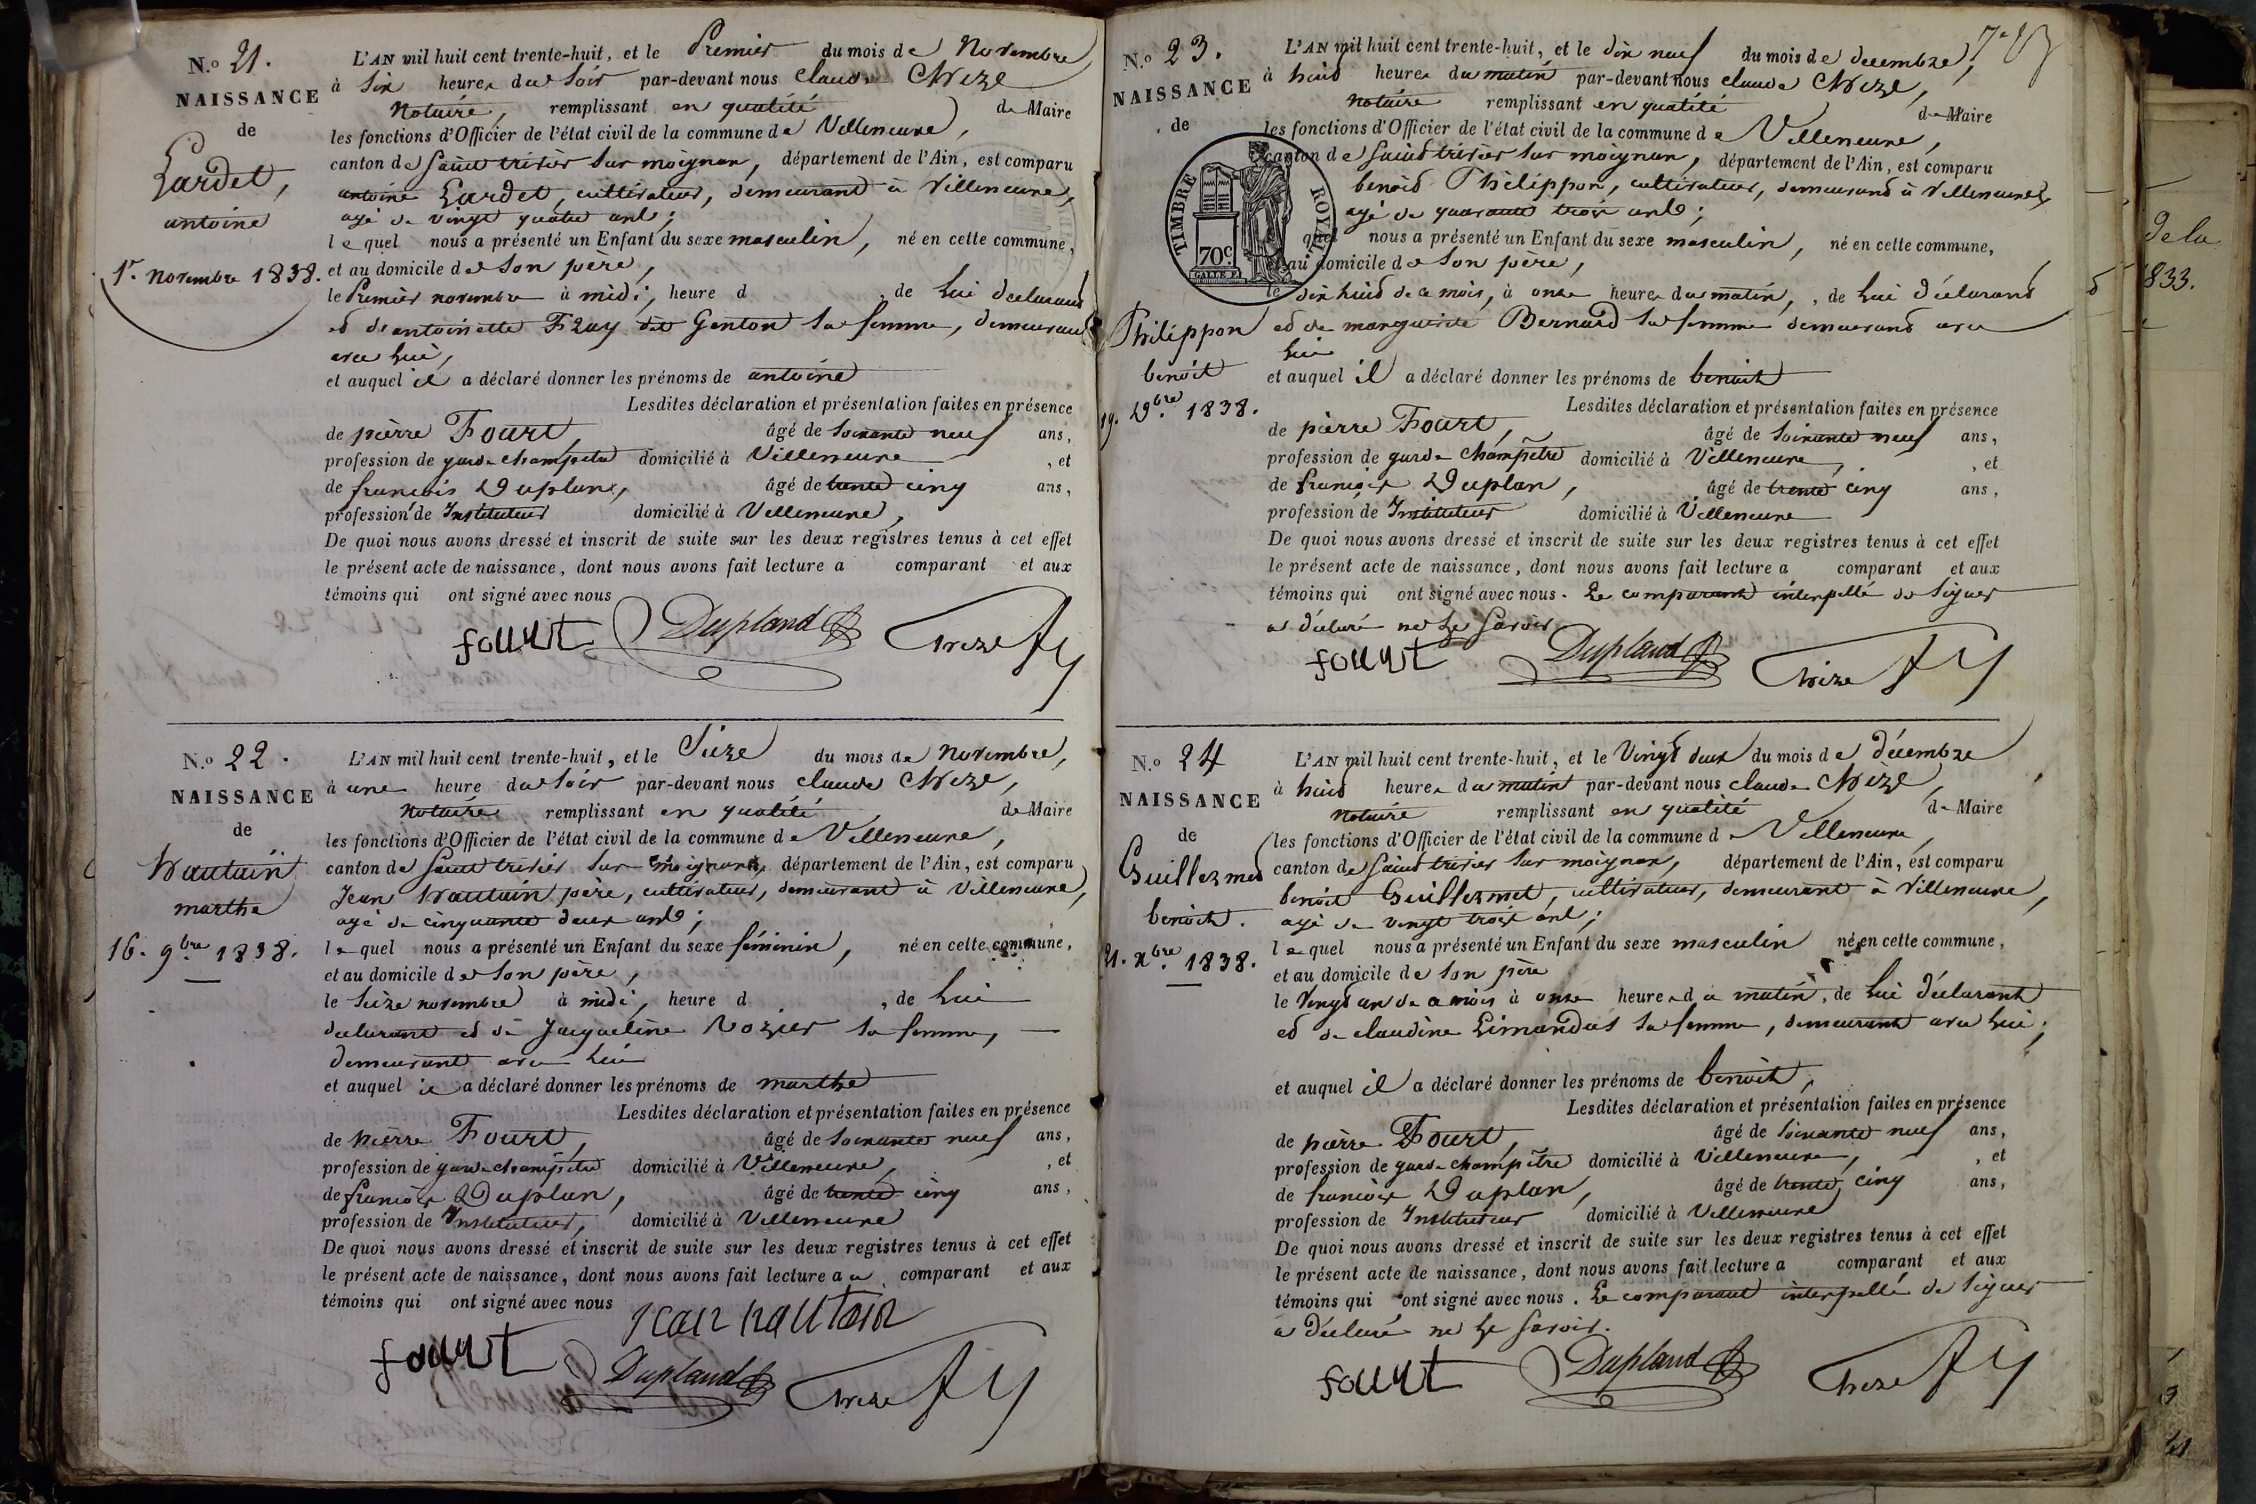 N.o 21.
NAISSANCE
de
Lardet,
antoine
1er. novembre 1838.
L'AN mil huit cent trente-huit, et le Premier du mois de Novembre
à Six heures du Soir par-devant nous Claude Chize
Notaire, remplissant en qualité de Maire
les fonctions d'Officier de l'état civil de la commune de Villeneuve,
canton de Saint trivier Sur moignan, département de l'Ain, est comparu
antoine Lardet, cultivateur, demeurant à Villeneuve,
agé de vingt quatre ans;
lequel nous a présenté un Enfant du sexe masculin, né en cette commune,
et au domicile de Son père,
le Premier novembre à midi, heure d , de Lui déclarant
et d'antoinette Fray dit Genton Sa femme, demeurant
avec Lui,
et auquel il a déclaré donner les prénoms de antoine
Lesdites déclaration et présentation faites en présence
de pierre Fourt, âgé de Soixante neuf ans,
profession de garde champetre domicilié à Villeneuve , et
de françois Duplan, âgé de trente cinq ans,
profession de Instituteur domicilié à Villeneuve,
De quoi nous avons dressé et inscrit de suite sur les deux registres tenus à cet effet
le présent acte de naissance, dont nous avons fait lecture a comparant et aux
témoins qui ont signé avec nous
fouurt Dupland Chize
N.o 22.
NAISSANCE
de
Nautuin
marthe
16. 9bre 1838.
L'AN mil huit cent trente-huit, et le Sieze du mois de Novembre,
à une heure du Soir par-devant nous Claude Chize,
Notaire remplissant en qualité de Maire
les fonctions d'Officier de l'état civil de la commune de Villeneuve,
canton de Saint trivier Sur moignan, département de l'Ain, est comparu
Jean Nautuin père, cultivateur, demeurant à Villeneuve,
agé de cinquante deux ans;
lequel nous a présenté un Enfant du sexe féminin, né en cette commune,
et au domicile de Son père,
le Seize novembre à midi, heure d , de Lui
déclarant et de Jacqueline Rozier Sa femme,
demeurant avec Lui
et auquel il a déclaré donner les prénoms de marthe
Lesdites déclaration et présentation faites en présence
de pierre Fourt, âgé de Soixante neuf ans,
profession de garde champetre domicilié à Villeneuve, , et
de françois Duplan, âgé de trente cinq ans,
profession de Instituteur, domicilié à Villeneuve
De quoi nous avons dressé et inscrit de suite sur les deux registres tenus à cet effet
le présent acte de naissance, dont nous avons fait lecture a u comparant et aux
témoins qui ont signé avec nous
jean nautoin
fouurt Dupland Chize
N.o 23.
NAISSANCE
de
Philippon
benoit
19. Dbre 1838.
TIMBRE ROYAL
70c.
L'AN mil huit cent trente-huit, et le dix neuf du mois de decembre,
à huit heures du matin par-devant nous claude Chize,
Notaire remplissant en qualité de Maire
les fonctions d'Officier de l'état civil de la commune de Villeneuve,
canton de Saint trivier Sur moignan, département de l'Ain, est comparu
benoit Philippon, cultivateur, demeurant à Villeneuve,
agé de quarante trois ans;
quel nous a présenté un Enfant du sexe masculin, né en cette commune,
et au domicile de Son père,
le dix huit de ce mois, à onze heures du matin, , de Lui déclarant
et de marguerite Bernard Sa femme demeurant avec
Lui
et auquel il a déclaré donner les prénoms de benoit
Lesdites déclaration et présentation faites en présence
de pierre Fourt, âgé de Soixante neuf ans,
profession de garde champêtre domicilié à Villeneuve, , et
de françois Duplan, âgé de trente cinq ans,
profession de Instituteur domicilié à Villeneuve
De quoi nous avons dressé et inscrit de suite sur les deux registres tenus à cet effet
le présent acte de naissance, dont nous avons fait lecture a comparant et aux
témoins qui ont signé avec nous. Le comparant interpellé de Signer
a déclaré ne Le Savoir
fouurt Dupland Chize
N.o 24
NAISSANCE
de
Guillermet
benoit.
21. Xbre 1838.
L'AN mil huit cent trente-huit, et le Vingt deux du mois de décembre
à huit heures du matin par-devant nous claude Chize,
Notaire remplissant en qualité de Maire
les fonctions d'Officier de l'état civil de la commune de Villeneuve,
canton de Saint trivier Sur moignan, département de l'Ain, est comparu
benoit Guillermet, cultivateur, demeurant à Villeneuve,
agé de vingt trois ans;
lequel nous a présenté un Enfant du sexe masculin né en cette commune,
et au domicile de Son père
le Vingt un de ce mois à onze heures du matin, de Lui déclarant
et de claudine Limandas Sa femme, demeurant avec Lui;
et auquel il a déclaré donner les prénoms de benoit,
Lesdites déclaration et présentation faites en présence
de pierre Fourt, âgé de Soixante neuf ans,
profession de garde champêtre domicilié à Villeneuve, , et
de françois Duplan, âgé de trente cinq ans,
profession de Instituteur domicilié à Villeneuve
De quoi nous avons dressé et inscrit de suite sur les deux registres tenus à cet effet
le présent acte de naissance, dont nous avons fait lecture a comparant et aux
témoins qui ont signé avec nous. Le comparant interpellé de Signer
a déclaré ne Le Savoir.
fouurt Dupland Chize
de la
1833.